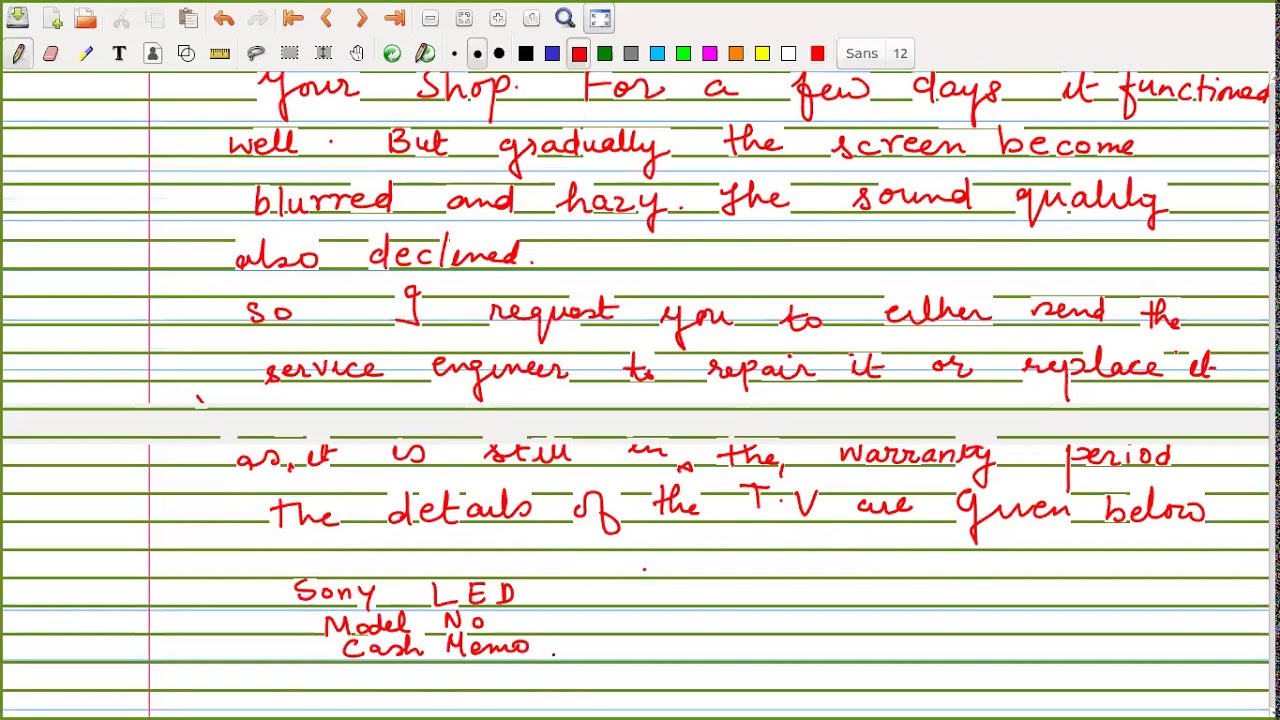 Sans 12
Your Shop. For a few days it functioned
well. But gradually the screen become
blurred and hazy. The sound quality
also declined.
So I request you to either send the
service engineer to repair it or replace it
as, it is still in the, warranty period
The details of the T.V are given below
Sony LED
Model No
Cash Memo.